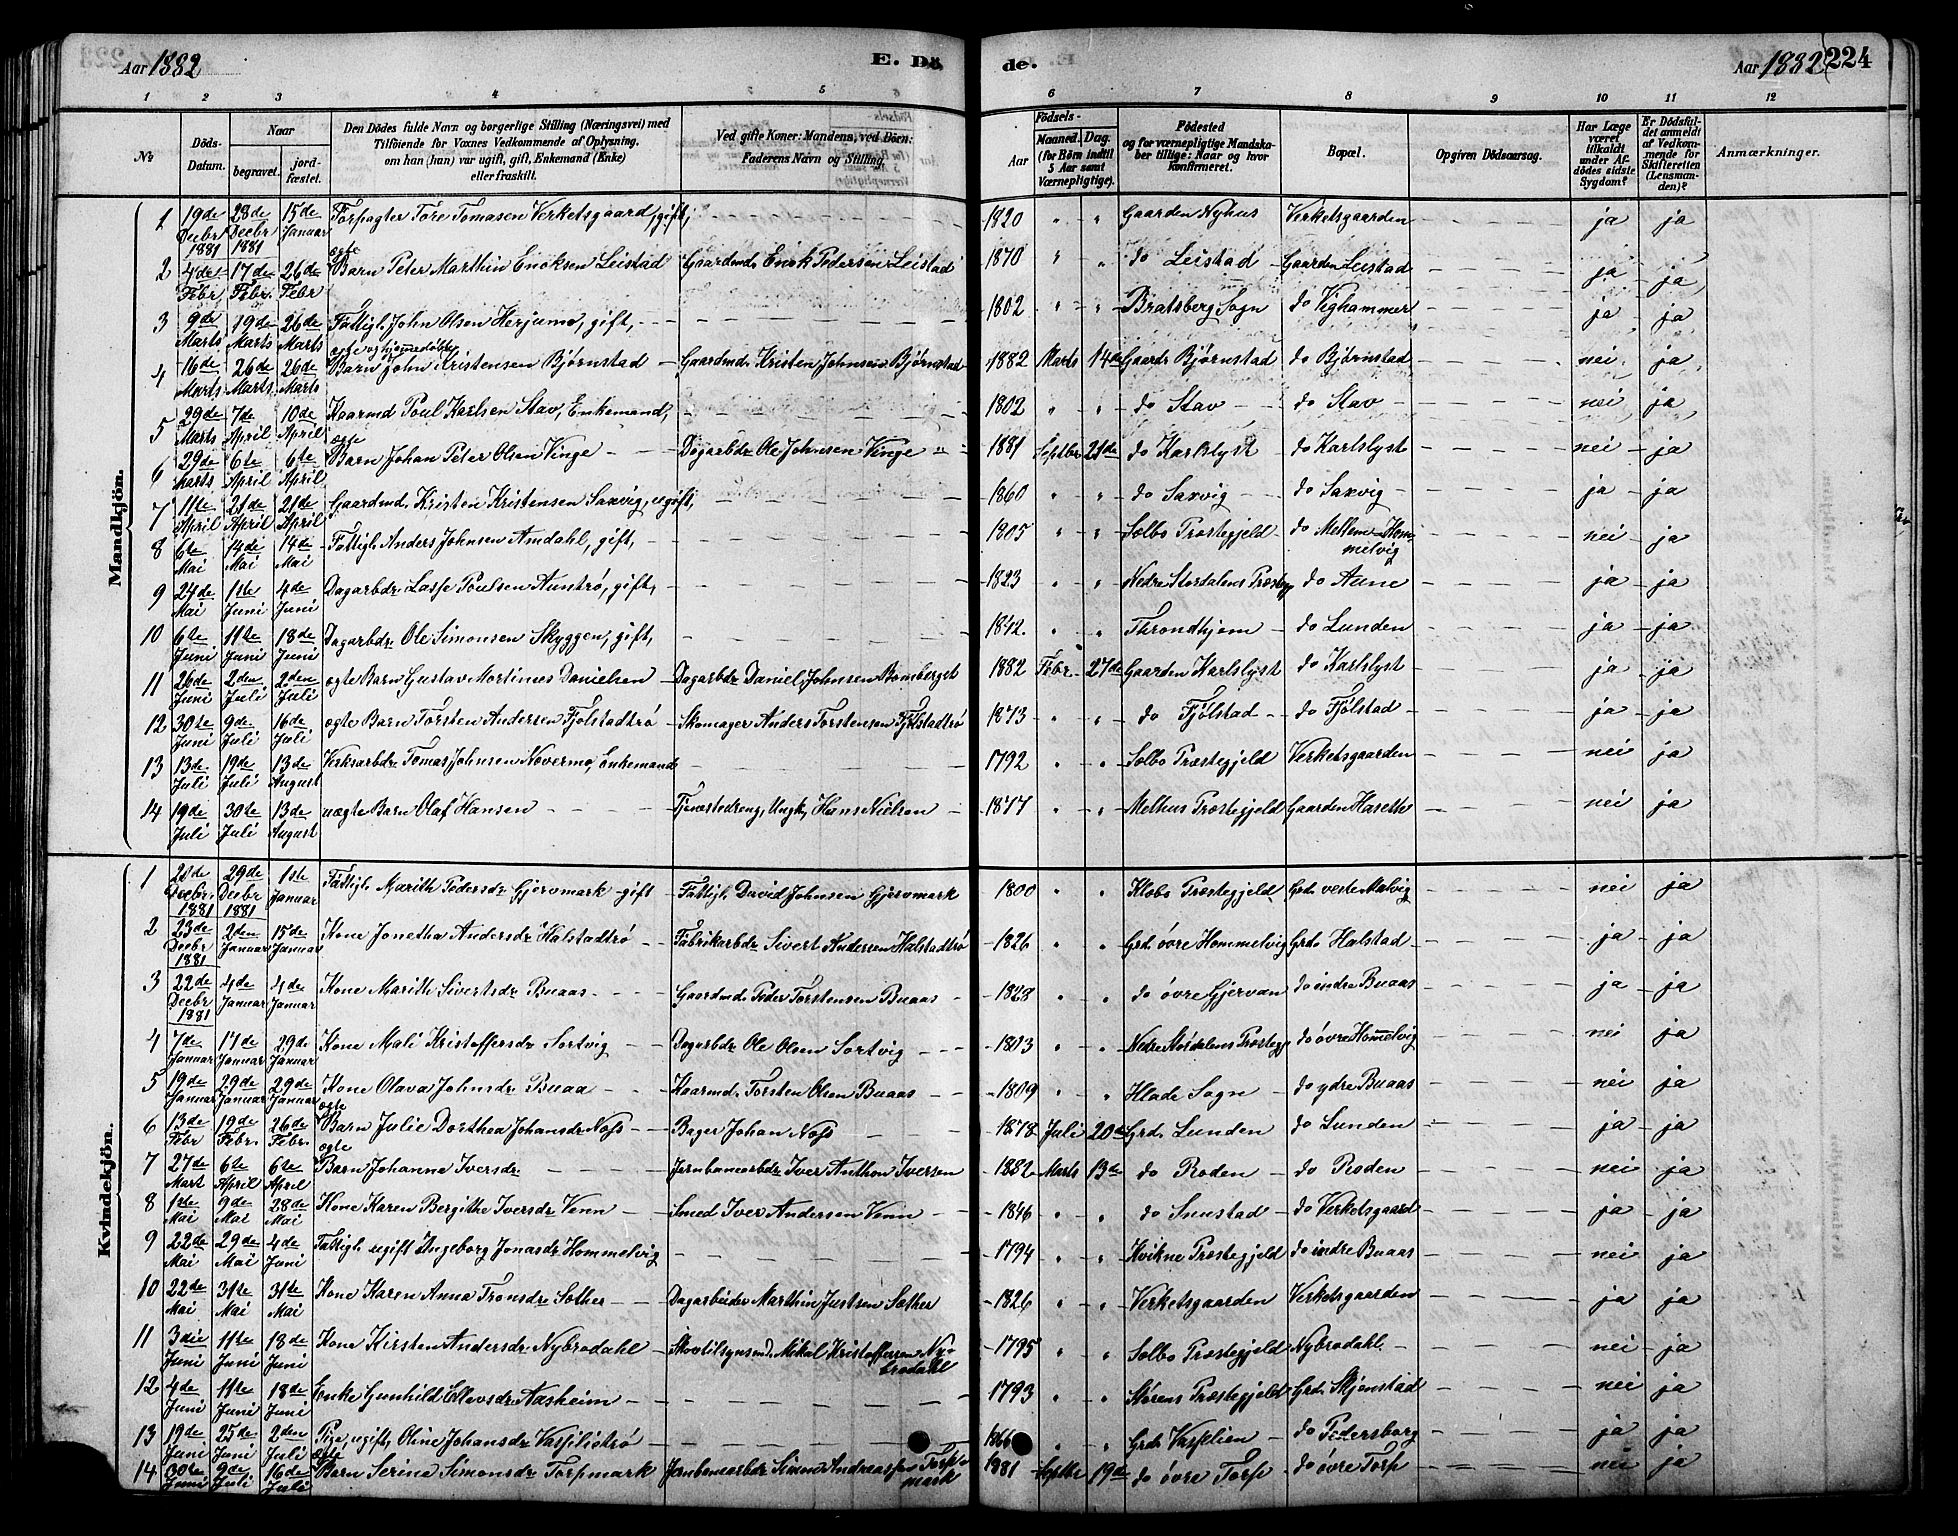 Aar 1882 E. Dö de. Aar 1882 224
1 2 3 4 5 6 6 7 8 9 10 11 12
No
Döds-Datum.
Naar
begravet. jordfæstet.
Den Dödes fulde Navn og borgerlige Stilling (Næringsvei) med
Tilföiende for Voxnes Vedkommende af Oplysning,
om han (hun) var ugift, gift, Enkemand (Enke)
eller fraskilt.
Ved gifte Koner: Mandens, ved Börn:
Faderens Navn og Stilling.
Födsels-
Aar Maaned. Dag.
(for Börn indtil 5 Aar samt Værnepligtige).
Födested
og for værnepligtige Mandskaber tillige: Naar og hvor konfirmeret.
Bopæl.
Opgiven Dödsaarsag.
Har Læge været tilkaldt under Afdödes sidste Sygdom?
Er Dödsfaldet anmeldt af Vedkommende for Skifteretten (Lensmanden)?
Anmærkninger.
Mandkjön.
1 19de Decbr 1881 28de Decbr 1881 15de Januar Forpagter Tore Tomasen Verketsgaard, gift, 1820 " " Gaarden Nyhus Verketsgaarden ja ja
2 4de Febr 17de Febr. 26de Febr ægte Barn Peter Marthin Enoksen Leistad Gaardmd. Enok Pedersen Leistad 1870 " " do Leistad Gaarden Leistad ja ja
3 9de Marts 19de Marts 26de Marts Fattigl. John Olsen Herjumo, gift, 1802 " " Bratsberg Sogn do Vighammer ja ja
4 16de Marts 26de Marts 26de Marts ægte og hjemmedøbte Barn John Kristensen Bjørnstad Gaardmd. Kristen Johnsen Bjørnstad 1882 Marts 14de Gaard Bjørnstad do Bjørnstad nei ja
5 29de Marts 7de April 10de April Kaarmd Poul Karlsen Stav, Enkemand, 1802 " " do Stav do Stav nei ja
6 29de Marts 6te April 6te April ægte Barn Johan Peter Olsen Vinge Dagarbdr Ole Johnsen Vinge 1881 Septbr 21de do Karlslyst do Karlslyst nei ja
7 11te April 21de April 21de April Gaardmd. Kristen Kristensen Saxvig, ugift, 1860 " " do Saxvig do Saxvig ja ja
8 6te Mai 14de Mai 14de Mai Fattigl. Anders Johnsen Amdahl, gift, 1805 " " Selbo Præstegjeld do Mellem-Hommelvig nei ja
9 24de Mai 1ste Juni 4de Juni Dagarbdr Lasse Poulsen Aunstrø, gift, 1823 " " Nedre Stordalens Præstegj do Aune ja ja
10 6te Juni 11te Juni 18de Juni Dagarbdr Ole Simonsen Skyggen, gift, 1842. " " Throndhjem do Lunden ja ja
11 26de Juni 2den Juli 2den Juli ægte Barn Gustav Martinus Danielsen Dagarbdr Daniel Johnsen Bomberget 1882 Febr 27de Gaarden Karlslyst do Karlslyst ja ja
12 30te Juni 9de Juli 16de Juli ægte Barn Torsten Andersen Fjølstadtrø Skomager Anders Torstensen Fjølstadtrø 1873 " " do Fjølstad do Fjølstad ja ja
13 13de Juli 19de Juli 13de August Verksarbdr Tomas Johnsen Novermo, Enkemand 1792 " " Selbo Præstegjeld Verketsgaarden nei ja
14 19de Juli 30te Juli 13de August uægte Barn Olaf Hansen Tjenestedreng, Ungk, Hans Nielsen 1877 " " Melhus Præstegjeld Gaarden Hareth nei ja
Kvindekjön.
1 21de Decbr. 1881 29de Decbr 1881 1ste Januar Fattigl. Marith Pedersdr Gjervmark gift Fattigl. David Johnsen Gjervmark 1800 " " Klæbo Præstegjeld Grd. vestre Malvig nei ja
2 23de Decbr 1881 2den Januar 15de Januar Kone Jonetha Andersdr Halstadtrø Fabrikarbdr Sivert Andersen Halstadtrø 1826 " " Grd. øvre Hommelvig Grd. Halstad ja ja
3 22de Decbr 1881 4de Januar 4de Januar Kone Marith Sivertsdr Buaas Gaardmd. Peder Torstensen Buaas 1828 " " do øvre Gjervan do indre Buaas ja ja
4 7de Januar 17de Januar 29de Januar Kone Mali Kristoffersdr Sortvig Dagarbdr Ole Olsen Sortvig 1803 " " Nedre Størdalens Præstegj do øvre Hommelvig nei ja
5 19de Januar 29de Januar 29de Januar Kone Olava Johnsdr Buaa Kaarmd. Torsten Olsen Buaas 1809 " " Hlade Sogn do ydre Buaas nei ja
6 13de Febr 19de Febr. 26de Febr. ægte Barn Julie Dorthea Johansdr Noss Bager Johan Noss 1878 Juli 20de Grd. Lunden do Lunden ja ja
7 27de Mart 6te April 6te April ægte Barn Johanne Iversdr Jernbanearbdr Iver Anthon Iversen 1882 Marts 13de do Roden do Roden nei ja
8 1ste Mai 9de Mai 28de Mai Kone Karen Bergithe Iversdr Venn Smed Iver Andersen Venn 1846 " " do Snustad do Verketsgaard ja ja
9 22de Mai 29de Mai 4de Juni Fattigl. ugift Ingeborg Jonasdr Hommelvig 1794 " " Kvikne Præstegjeld do indre Buaas nei ja
10 22de Mai 31te Mai 31te Mai Kone Karen Anna Tronsdr Sæther Dagarbeider Marthin Justsen Sæther 1826 " " Verketsgaarden Verketsgaarden ja ja
11 3die Juni 11te Juni 18de Juni Kone Kirsten Andersdr Nybrodahl Skovtilsynsmd. Mikal Kristoffersen Nybrodahl 1795 " " Selbo Præstegjeld Nybrodahl nei ja
12 4de Juni 11te Juni 18de Juni Enke Gunhild Ellevsdr Aasheim 1793 " " Størens Præstegjeld Grd. Skjenstad nei ja
13 19de Juni 25de Juni 2den Juli Pige, ugift, Oline Johansdr Vasslistrø 1866 " " Grd. Vasslien do Pedersborg ja ja
14 30te Juni 9de Juli 16de Juli ægte Barn Serine Simonsdr Torpmark Jernbanearbdr Simon Andreassen Torpmark 1881 Septbr 19de do øvre Torp do øvre Torp nei ja